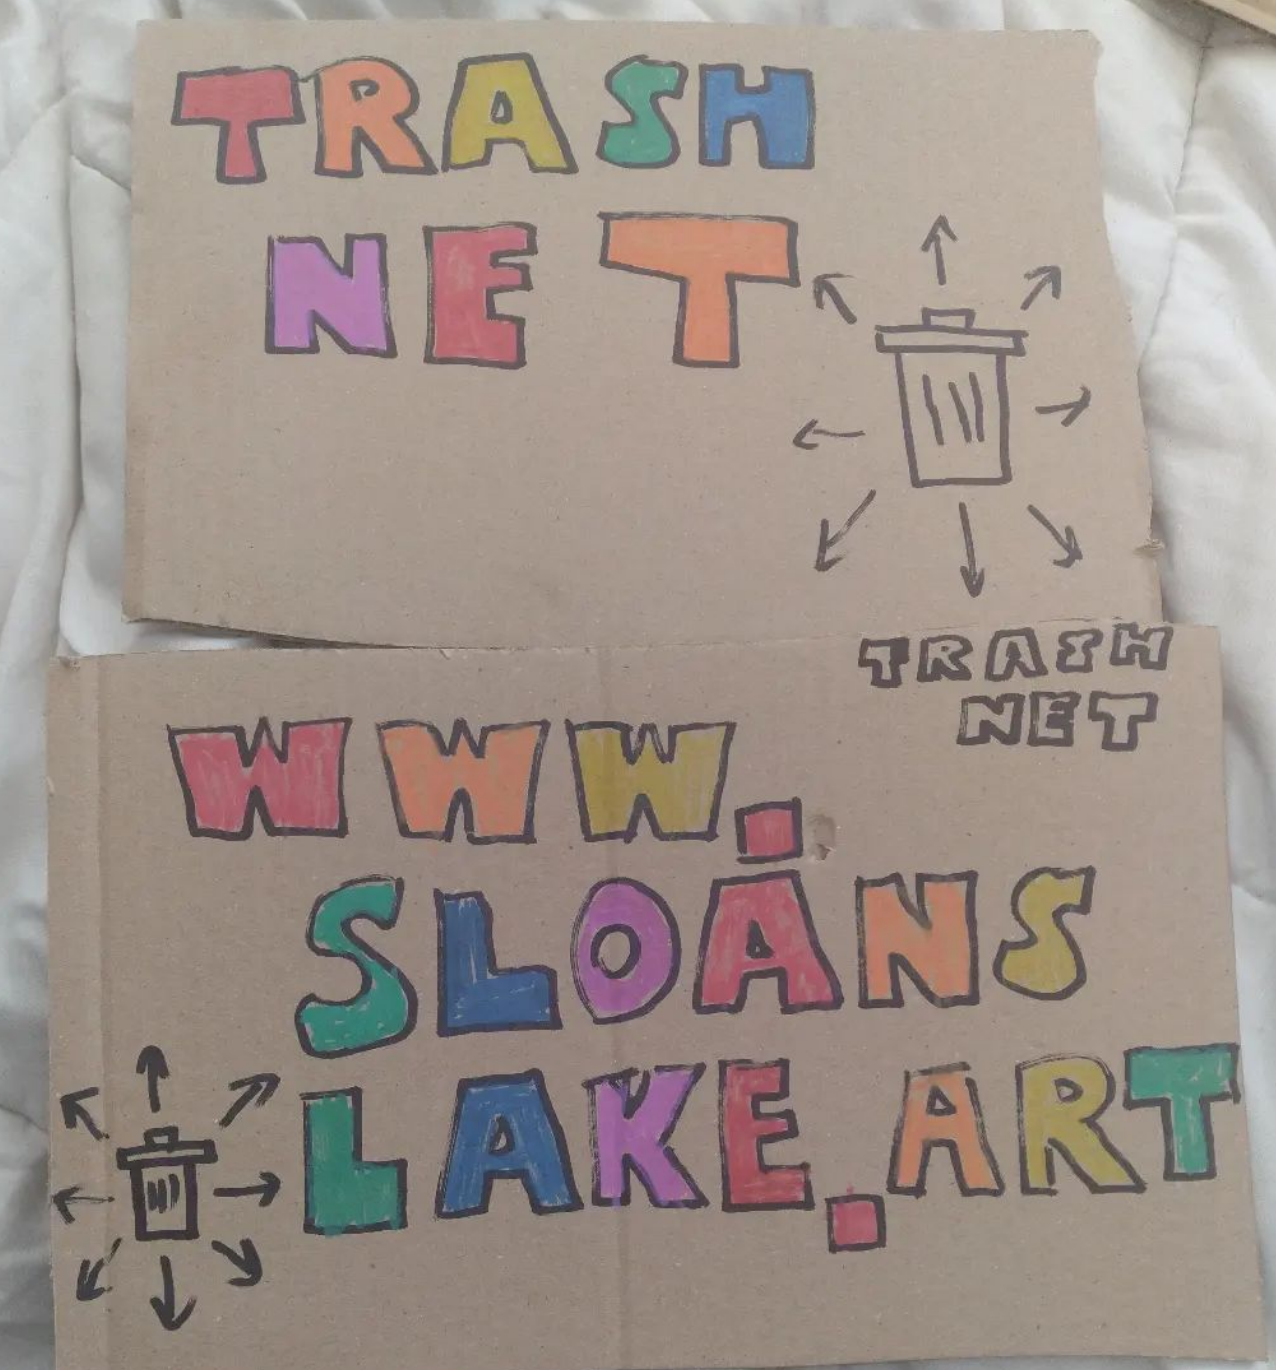 TRASH
NET
TRASH
NET
WWW.
SLOANS
LAKE.ART